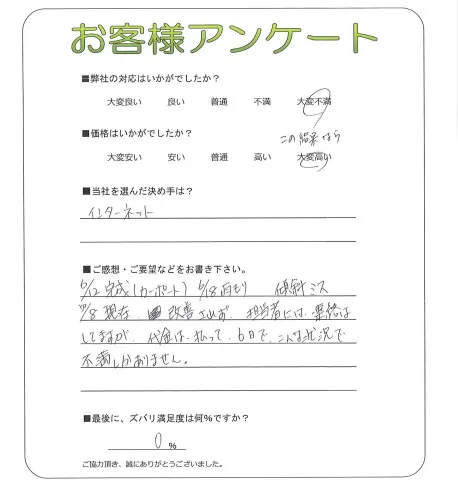 お客様アンケート
■弊社の対応はいかがでしたか?
大変良い 良い 普通 不満 大変不満
■価格はいかがでしたか?
この結果なら
大変安い 安い 普通 高い 大変高い
■当社を選んだ決め手は?
インターネット
■ご感想・ご要望などをお書き下さい。
6/12 完成(カーポート) 6/18 雨もり 傾斜ミス
10/8 現在 改善されず 担当者には、連絡は
してますが、代金は、払って、
こんな状況で
不満しかありません。
■最後に、ズバリ満足度は何%ですか?
0 %
ご協力頂き、誠にありがとうございました。